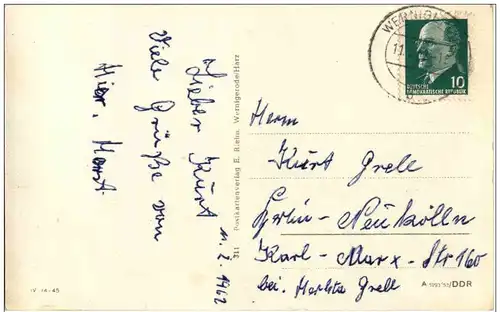 Lieber Kurt
11. 2. 1962
Viele Grüße von
Hier. Horst
311 Postkartenverlag E. Riehn, Wernigerode/Harz
WERNIG
10
DEUTSCHE
DEMOKRATISCHE REPUBLIK
Herrn
Kurt Grell
Berlin-Neukölln
Karl-Marx-Str 160
bei. Grell
IV-14-45
DDR